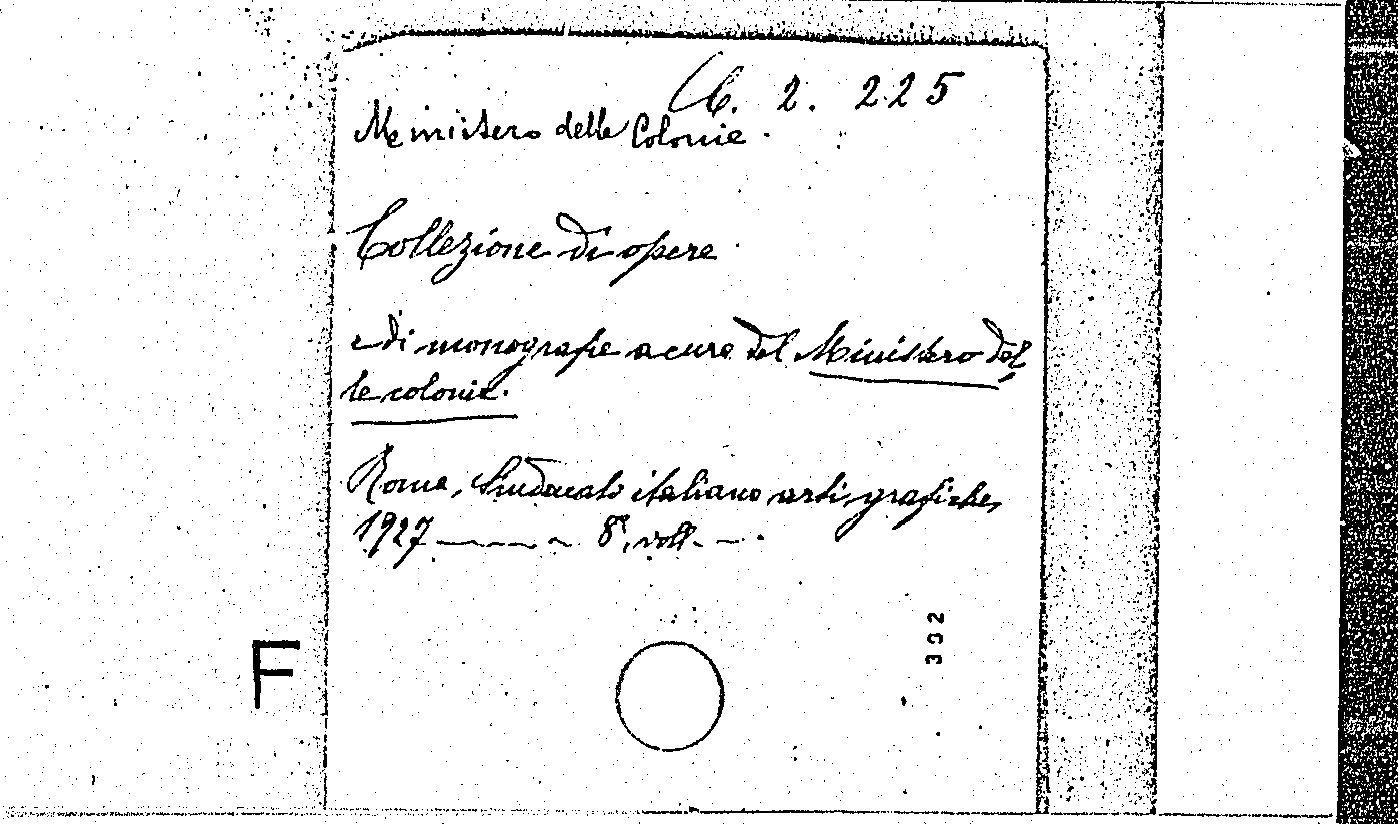 C. 2. 225
Ministero delle Colonie.
Collezione di opere
e di monografie a cura del Ministero del
le colonie.
Roma, Sindacato italiano arti grafiche,
1927 8°, voll.
302
F